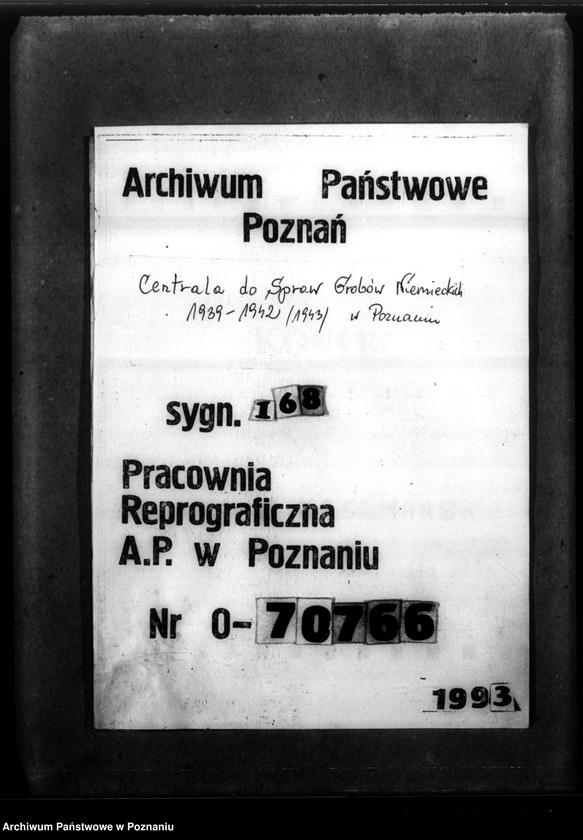 Archiwum Państwowe
Poznań
Centrala do Spraw Grobów Niemieckich
1939-1942 /1943/ w Poznaniu
sygn. 168
Pracownia
Reprograficzna
A.P. w Poznaniu
Nr 0-70766
1993
Archiwum Państwowe w Poznaniu